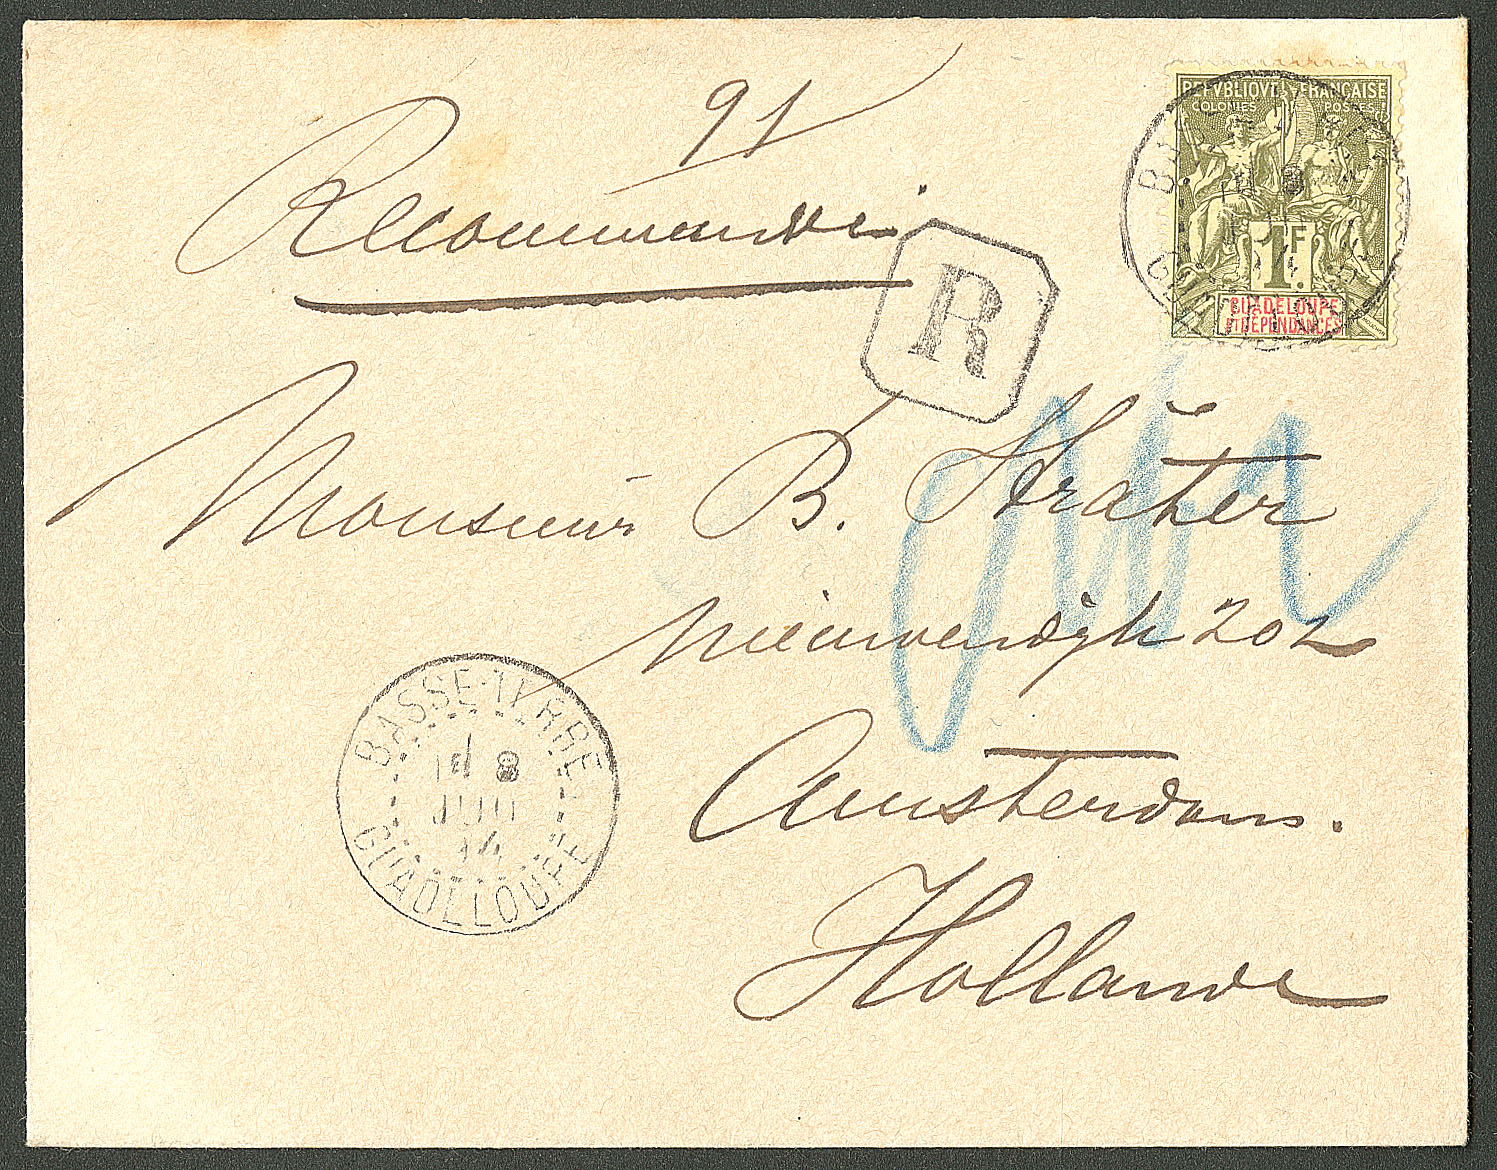 91
Recommandée
REPVBLIQVE FRANÇAISE
COLONIES POSTES
1F.
GUADELOUPE
ET DÉPENDANCES
R
Monsieur B. Sträter
Nieuwendijk 202
BASSE-TERRE
8
JUIL
94
GUADELOUPE
Amsterdam.
Hollande